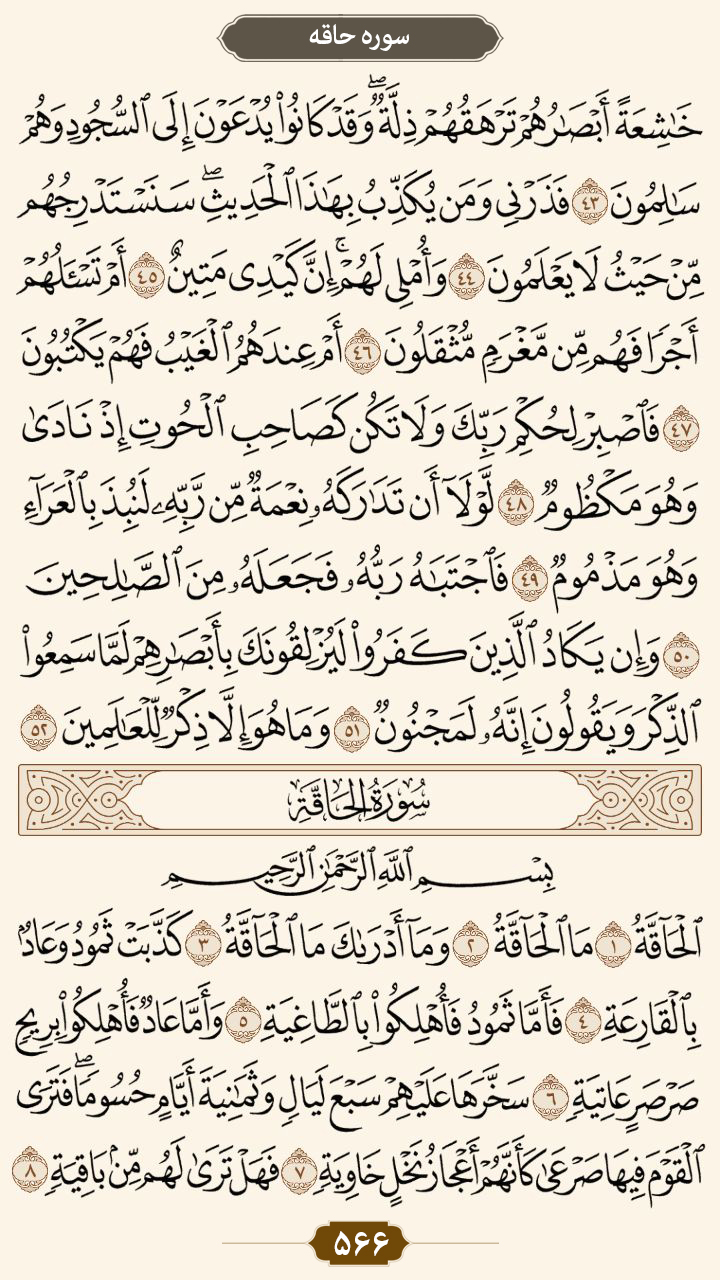 سوره حاقه
خَٰشِعَةً أَبْصَٰرُهُمْ تَرْهَقُهُمْ ذِلَّةٌۖ وَقَدْ كَانُوا۟ يُدْعَوْنَ إِلَى ٱلسُّجُودِ وَهُمْ
سَٰلِمُونَ ٤٣ فَذَرْنِى وَمَن يُكَذِّبُ بِهَٰذَا ٱلْحَدِيثِۖ سَنَسْتَدْرِجُهُم
مِّنْ حَيْثُ لَا يَعْلَمُونَ ٤٤ وَأُمْلِى لَهُمْۚ إِنَّ كَيْدِى مَتِينٌ ٤٥ أَمْ تَسْـَٔلُهُمْ
أَجْرًا فَهُم مِّن مَّغْرَمٍ مُّثْقَلُونَ ٤٦ أَمْ عِندَهُمُ ٱلْغَيْبُ فَهُمْ يَكْتُبُونَ
٤٧ فَٱصْبِرْ لِحُكْمِ رَبِّكَ وَلَا تَكُن كَصَاحِبِ ٱلْحُوتِ إِذْ نَادَىٰ
وَهُوَ مَكْظُومٌ ٤٨ لَّوْلَآ أَن تَدَٰرَكَهُۥ نِعْمَةٌ مِّن رَّبِّهِۦ لَنُبِذَ بِٱلْعَرَآءِ
وَهُوَ مَذْمُومٌ ٤٩ فَٱجْتَبَٰهُ رَبُّهُۥ فَجَعَلَهُۥ مِنَ ٱلصَّٰلِحِينَ
٥٠ وَإِن يَكَادُ ٱلَّذِينَ كَفَرُوا۟ لَيُزْلِقُونَكَ بِأَبْصَٰرِهِمْ لَمَّا سَمِعُوا۟
ٱلذِّكْرَ وَيَقُولُونَ إِنَّهُۥ لَمَجْنُونٌ ٥١ وَمَا هُوَ إِلَّا ذِكْرٌ لِّلْعَٰلَمِينَ ٥٢
سُورَةُ الحَاقَّةِ
بِسْمِ ٱللَّهِ ٱلرَّحْمَٰنِ ٱلرَّحِيمِ
ٱلْحَآقَّةُ ١ مَا ٱلْحَآقَّةُ ٢ وَمَآ أَدْرَىٰكَ مَا ٱلْحَآقَّةُ ٣ كَذَّبَتْ ثَمُودُ وَعَادٌۢ
بِٱلْقَارِعَةِ ٤ فَأَمَّا ثَمُودُ فَأُهْلِكُوا۟ بِٱلطَّاغِيَةِ ٥ وَأَمَّا عَادٌ فَأُهْلِكُوا۟ بِرِيحٍ
صَرْصَرٍ عَاتِيَةٍ ٦ سَخَّرَهَا عَلَيْهِمْ سَبْعَ لَيَالٍ وَثَمَٰنِيَةَ أَيَّامٍ حُسُومًاۖ فَتَرَى
ٱلْقَوْمَ فِيهَا صَرْعَىٰ كَأَنَّهُمْ أَعْجَازُ نَخْلٍ خَاوِيَةٍ ٧ فَهَلْ تَرَىٰ لَهُم مِّنۢ بَاقِيَةٍ ٨
۵۶۶